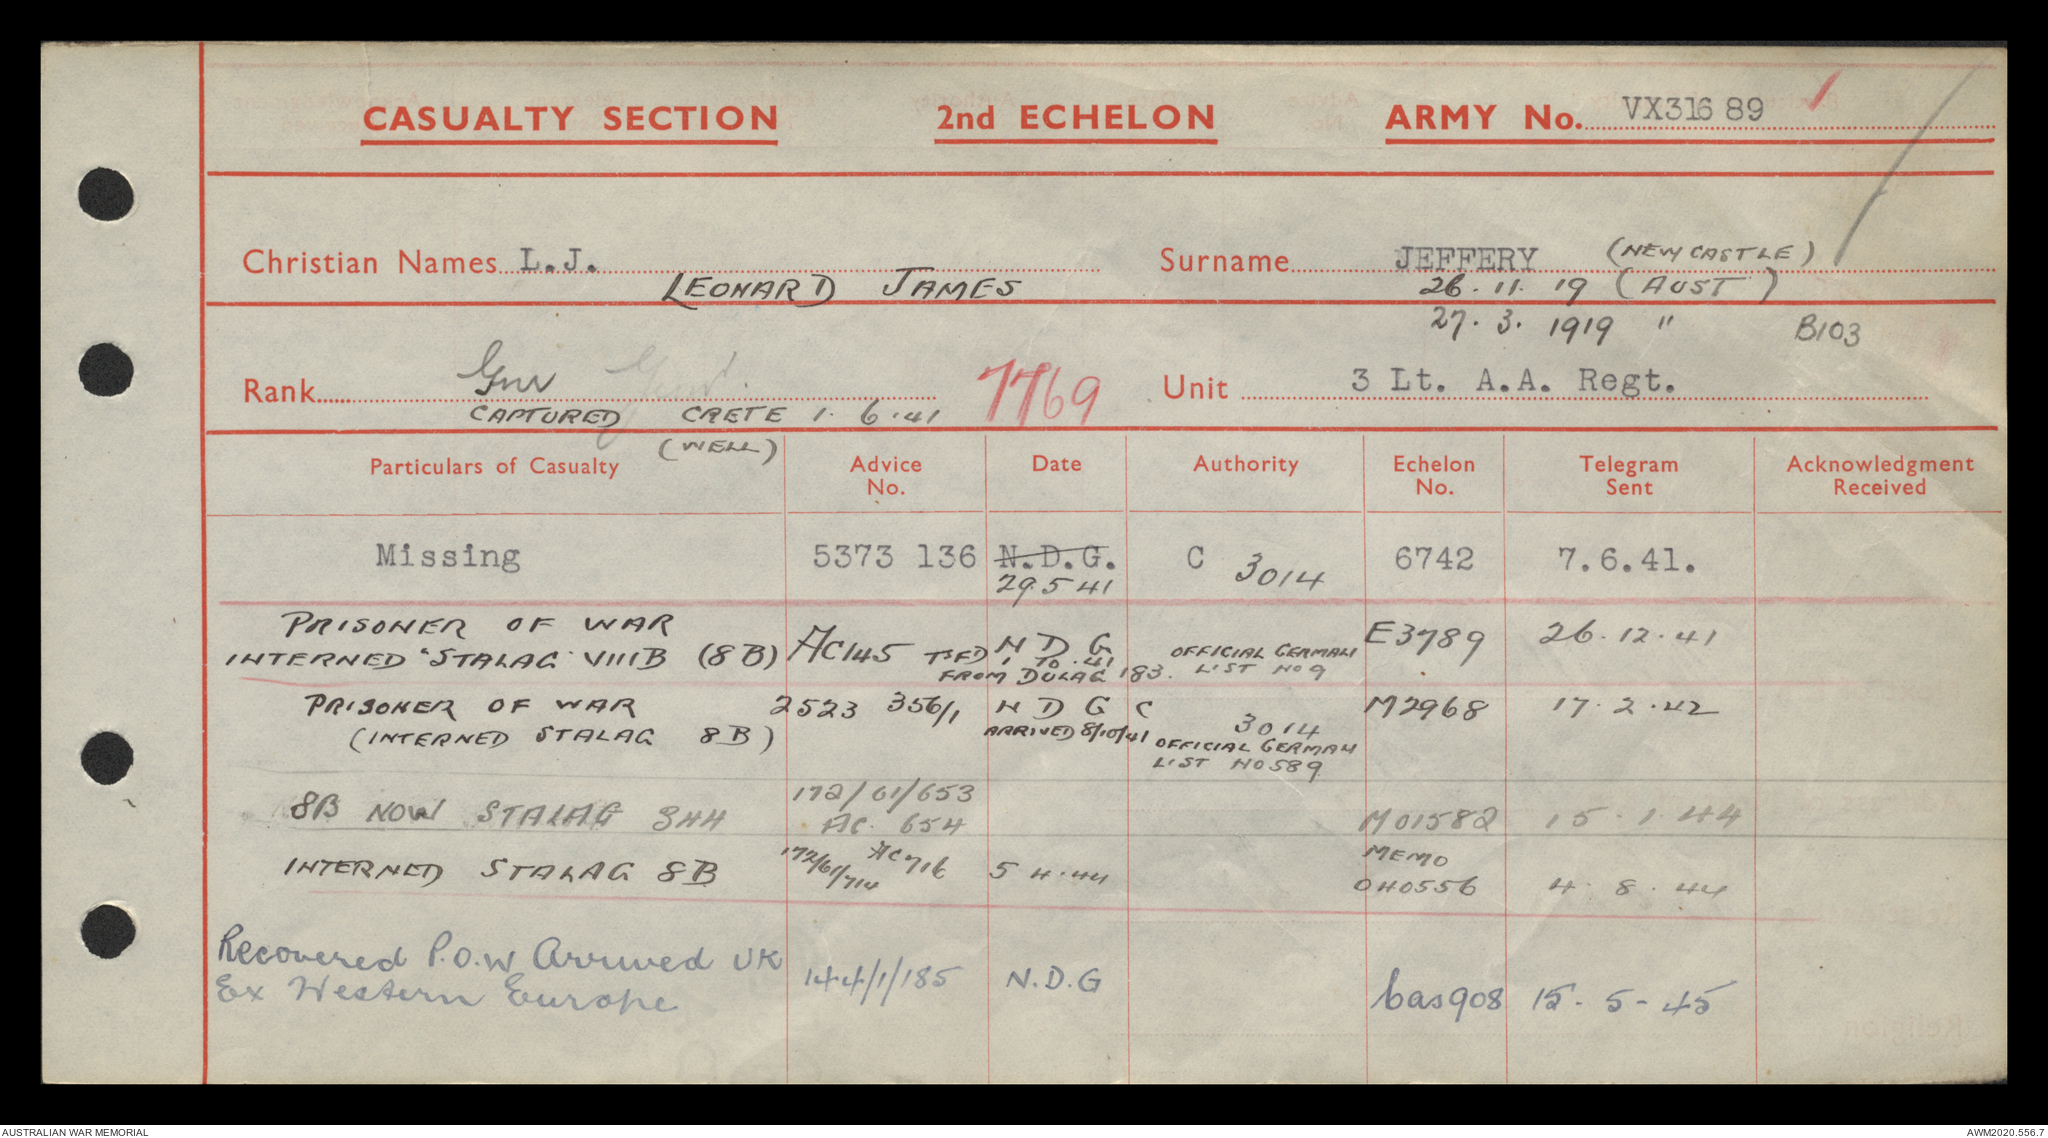 CASUALTY SECTION 2nd ECHELON ARMY No. VX31689
Christian Names L.J. Surname JEFFERY (NEWCASTLE)
LEONARD JAMES 26.11.19 (AUST)
27.3.1919 " B103
Rank Gnr Gnr. 7769 Unit 3 Lt. A.A. Regt.
CAPTURED CRETE 1.6.41
(WELL)
Particulars of Casualty Advice No. Date Authority Echelon No. Telegram Sent Acknowledgment Received
Missing 5373 136 N.D.G. C 3014 6742 7.6.41.
29.5.41
PRISONER OF WAR AC145 N D G OFFICIAL GERMAN E3789 26.12.41
INTERNED "STALAG" VIIIB (8B) TSFD 1.10.41 LIST NO 9
FROM DULAG 183.
PRISONER OF WAR 2523 356/1 N D G C 3014 M2968 17.2.42
(INTERNED STALAG 8B) ARRIVED 8/10/41 OFFICIAL GERMAN
LIST NO 589
172/61/653
8B NOW STALAG 344 AC. 654 M01582 15.1.44
INTERNED STALAG 8B 172/61/714 AC 716 5.4.44 MEMO
040556 4.8.44
Recovered P.O.W Arrived UK
Ex Western Europe 144/1/185 N.D.G Cas908 15-5-45
AUSTRALIAN WAR MEMORIAL AWM2020.556.7